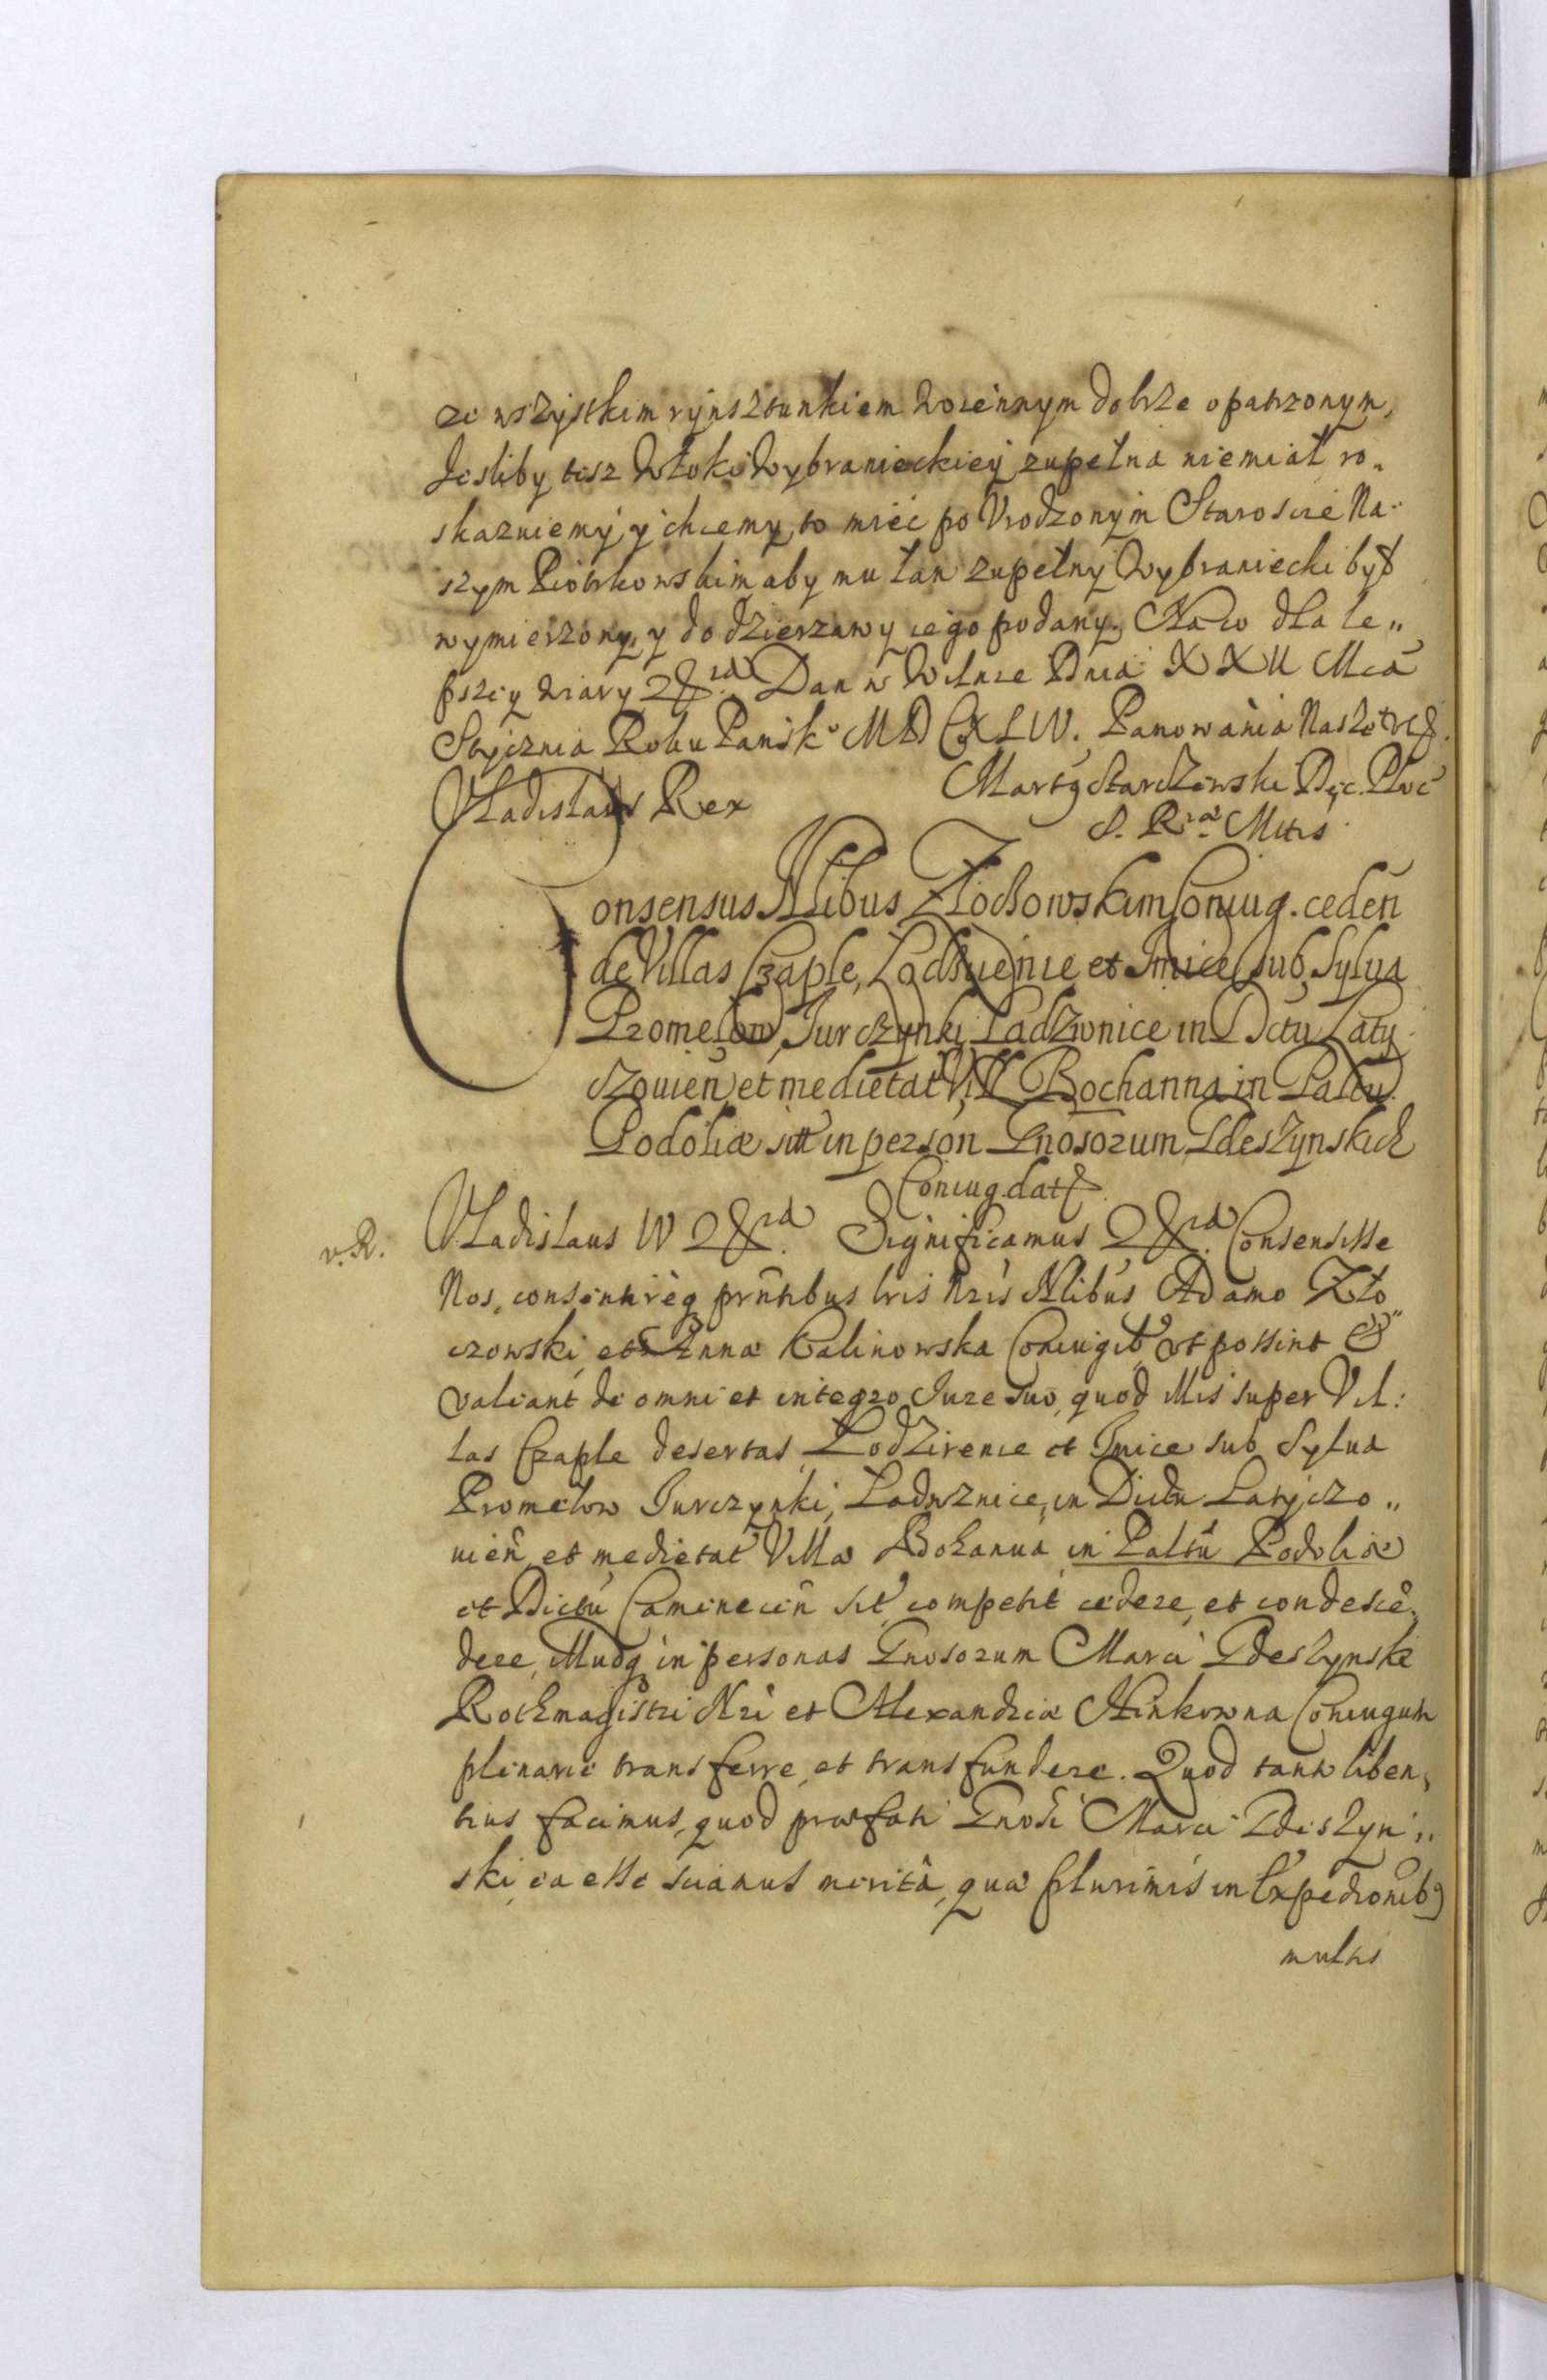 ze wszystkim rynsztunkiem woiennym dobrze opatrzonym,
Jesliby tesz Włoki Wybranieckiey zupełna niemiał ro„
skazuiemy, y chcemy to mieć po Vrodzonym Staroscie Na-
szym Piotrkowskim aby mu łan zupełny Wybraniecki był
wymierzony, y do dzierzawy iego podany. Na co dla le„
pszey wiary Dan w Wilnie Dnia XXII Mca
Stycznia Roku Pansko MDCXLIV. Panowania Nasze
Vladislaus Rex
S. Rae Mttis
onsensus Nlibus Złochowskim Coniug. ceden
de Villas Czaple, et Imice sub Sylua
Promelow, Jurczynki Ladzwnice in Dictu Laty
czouien, et medietat Vill Bochanna in Paltu
Podoliæ sitt in person Gnosorum Zdeszynskich
Coniug. datt
v. R.
Vladislaus IV Significamus Consensisse
Nos, consentireq prntibus lris nris Nlibus Adamo Zło„
czowski, et Annæ Kalinowska Coniugib vt possint &
valeant de omni et integro Jure suo, quod illis super Vil:
las Czaple desertas, Lodzirenie et Imice sub Sylua
Promelow Jurczynki, Ladwznice, in Dictu Latyczo„
uien, et medietat Villæ Bohanua in Paltu Podoliæ
et Dictu Camenecen sit competit cedere, et condescē„
dere, Illudq in personas Gnosorum Marci Zdeszynski
Rothmagistri Nri et Alexandriæ Hinkowna Coniugum
plenarie transferre, et transfundere. Quod tanto liben,
tius facimus, quod præfati Gnosi Marci Zdeszyn„
ski, ea esse sciamus merita, quæ plurimis in Expedionibq
multis